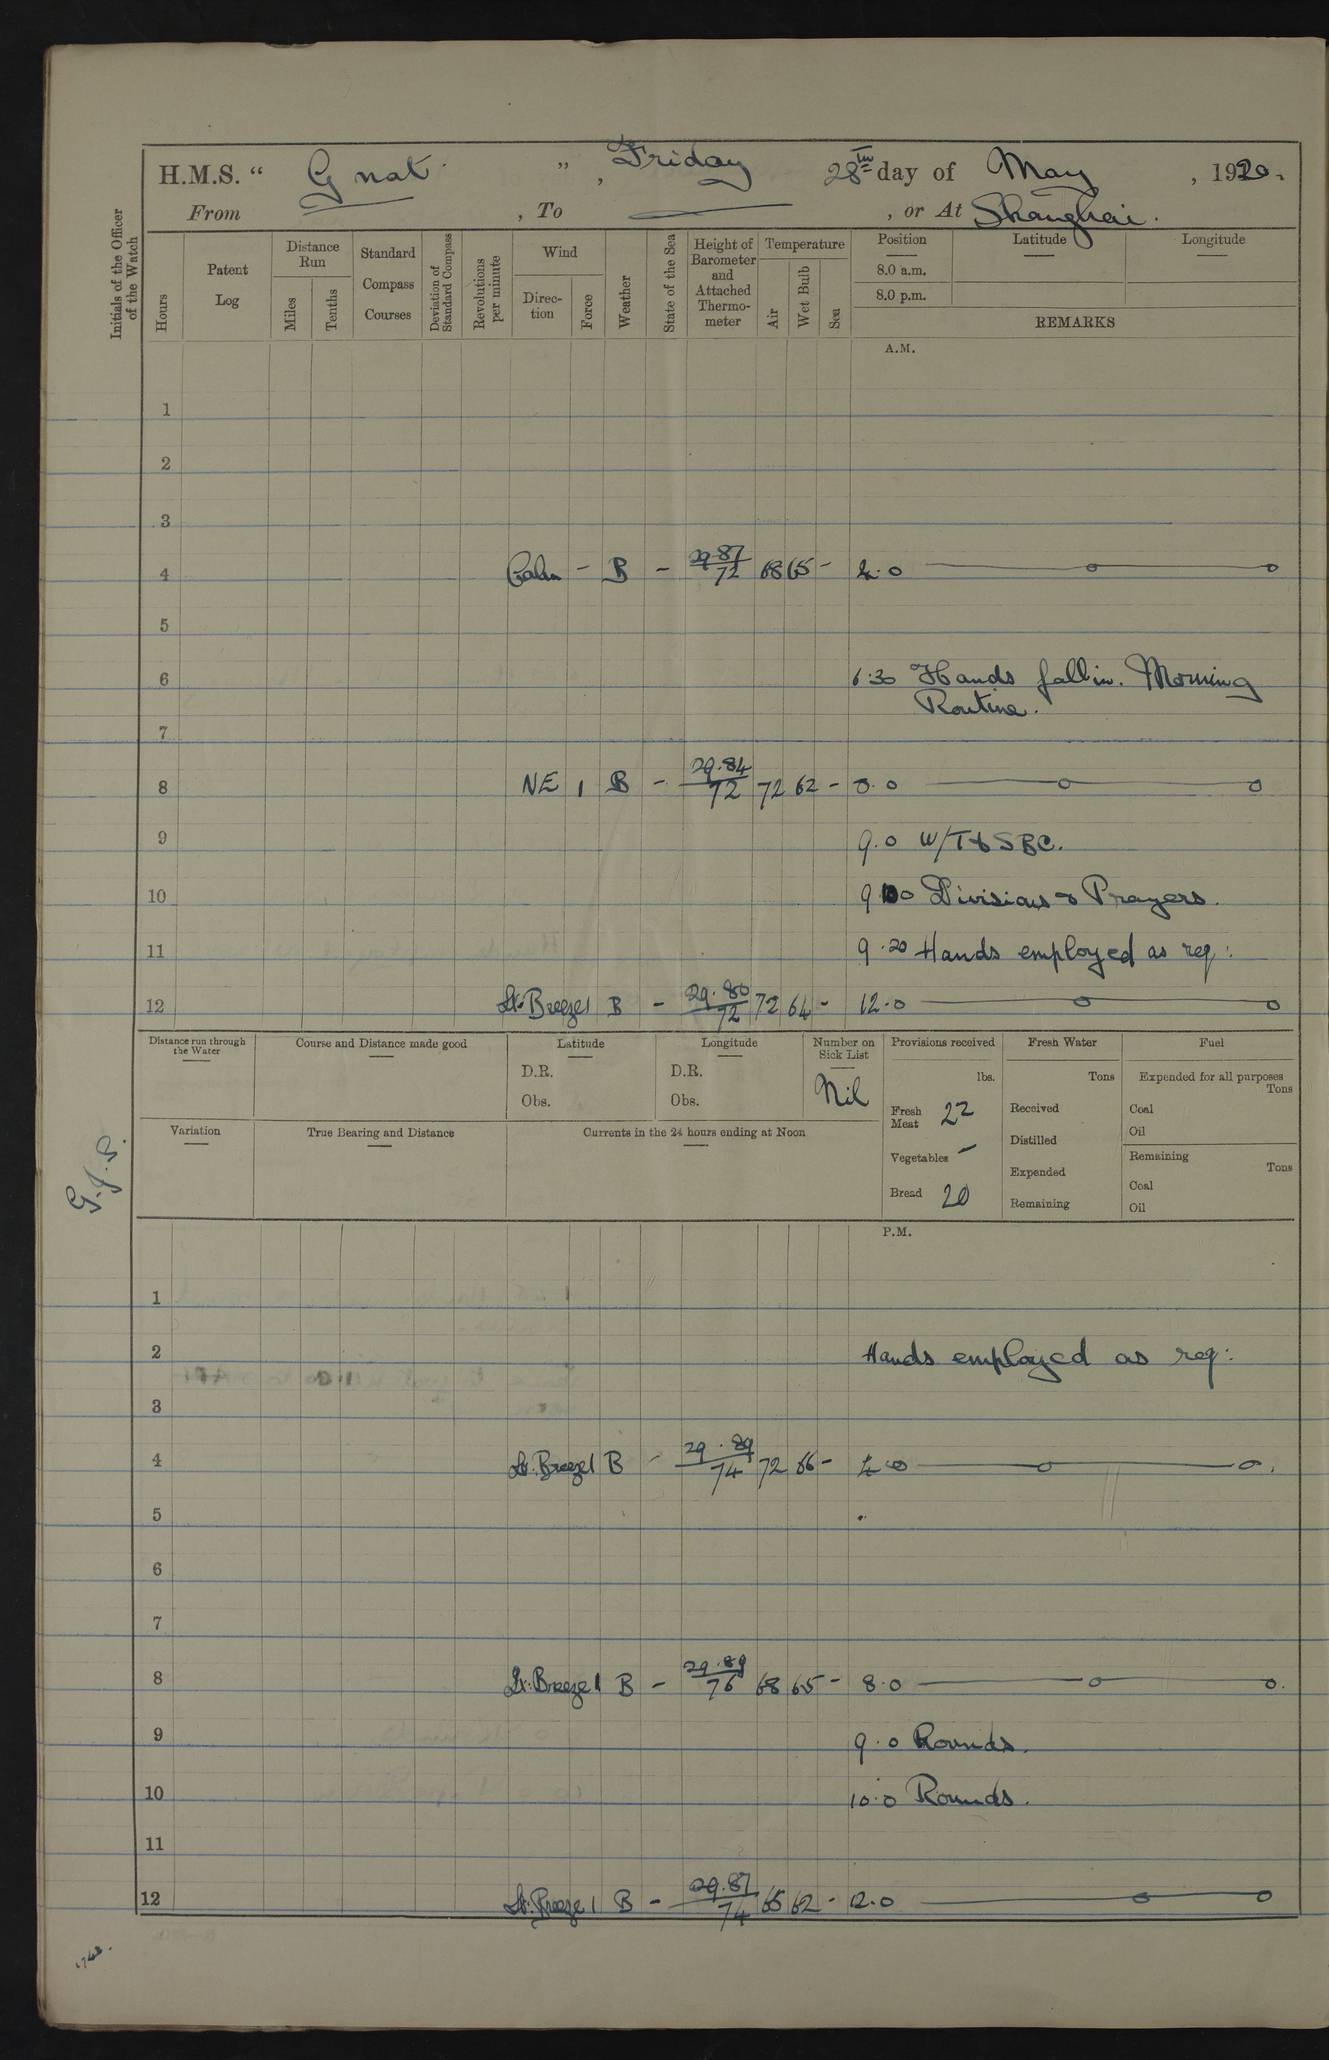 H.M.S. “ Gnat ” , Friday 28th day of May , 1920.
From , To , or At Shanghai.
Initials of the Officer of the Watch
Hours
Patent Log
Distance Run
Miles
Tenths
Standard Compass Courses
Deviation of Standard Compass
Revolutions per minute
Wind
Direction
Force
Weather
State of the Sea
Height of Barometer and Attached Thermometer
Temperature
Air
Wet Bulb
Sea
Position Latitude Longitude
8.0 a.m.
8.0 p.m.
REMARKS
A.M.
1
2
3
4 Calm - B - 29.87/72 68 65 - 4.0 —o—o
5
6 6.30 Hands fall in. Morning
Routine.
7
8 NE 1 B - 29.84/72 72 62 - 8.0 —o—o
9 9.0 W/T to SBC.
10 9.10 Divisions & Prayers.
11 9.20 Hands employed as req:
12 Lt. Breeze 1 B - 29.80/72 72 64 - 12.0 —o—o
Distance run through the Water
Course and Distance made good
Latitude
D.R.
Obs.
Longitude
D.R.
Obs.
Number on Sick List
Nil
Provisions received
lbs.
Fresh Meat 22
Vegetables -
Bread 20
Fresh Water
Tons
Received
Distilled
Expended
Remaining
Fuel
Expended for all purposes
Tons
Coal
Oil
Remaining
Tons
Coal
Oil
Variation
True Bearing and Distance
Currents in the 24 hours ending at Noon
P.M.
1
2 Hands employed as req:
3
4 Lt. Breeze 1 B - 29.89/74 72 66 - 4.0 —o—o.
5
6
7
8 Lt. Breeze 1 B - 29.89/76 68 65 - 8.0 —o—o.
9 9.0 Rounds.
10 10.0 Rounds.
11
12 Lt. Breeze 1 B - 29.87/74 65 62 - 12.0 —o—o